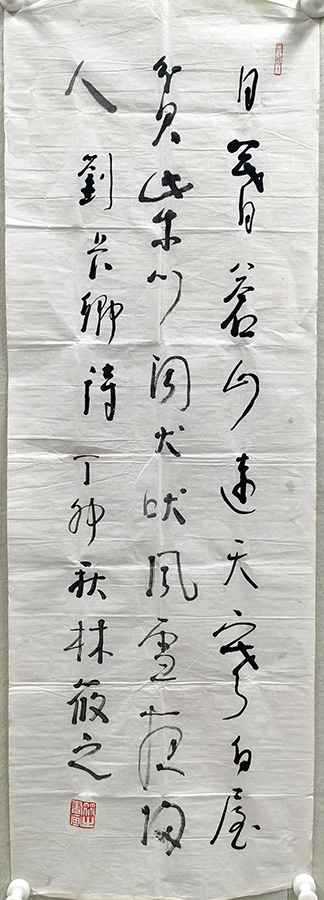 日暮蒼山遠天寒白屋
貧柴門聞犬吠風雪夜歸
人 劉長卿詩 丁卯秋林筱之